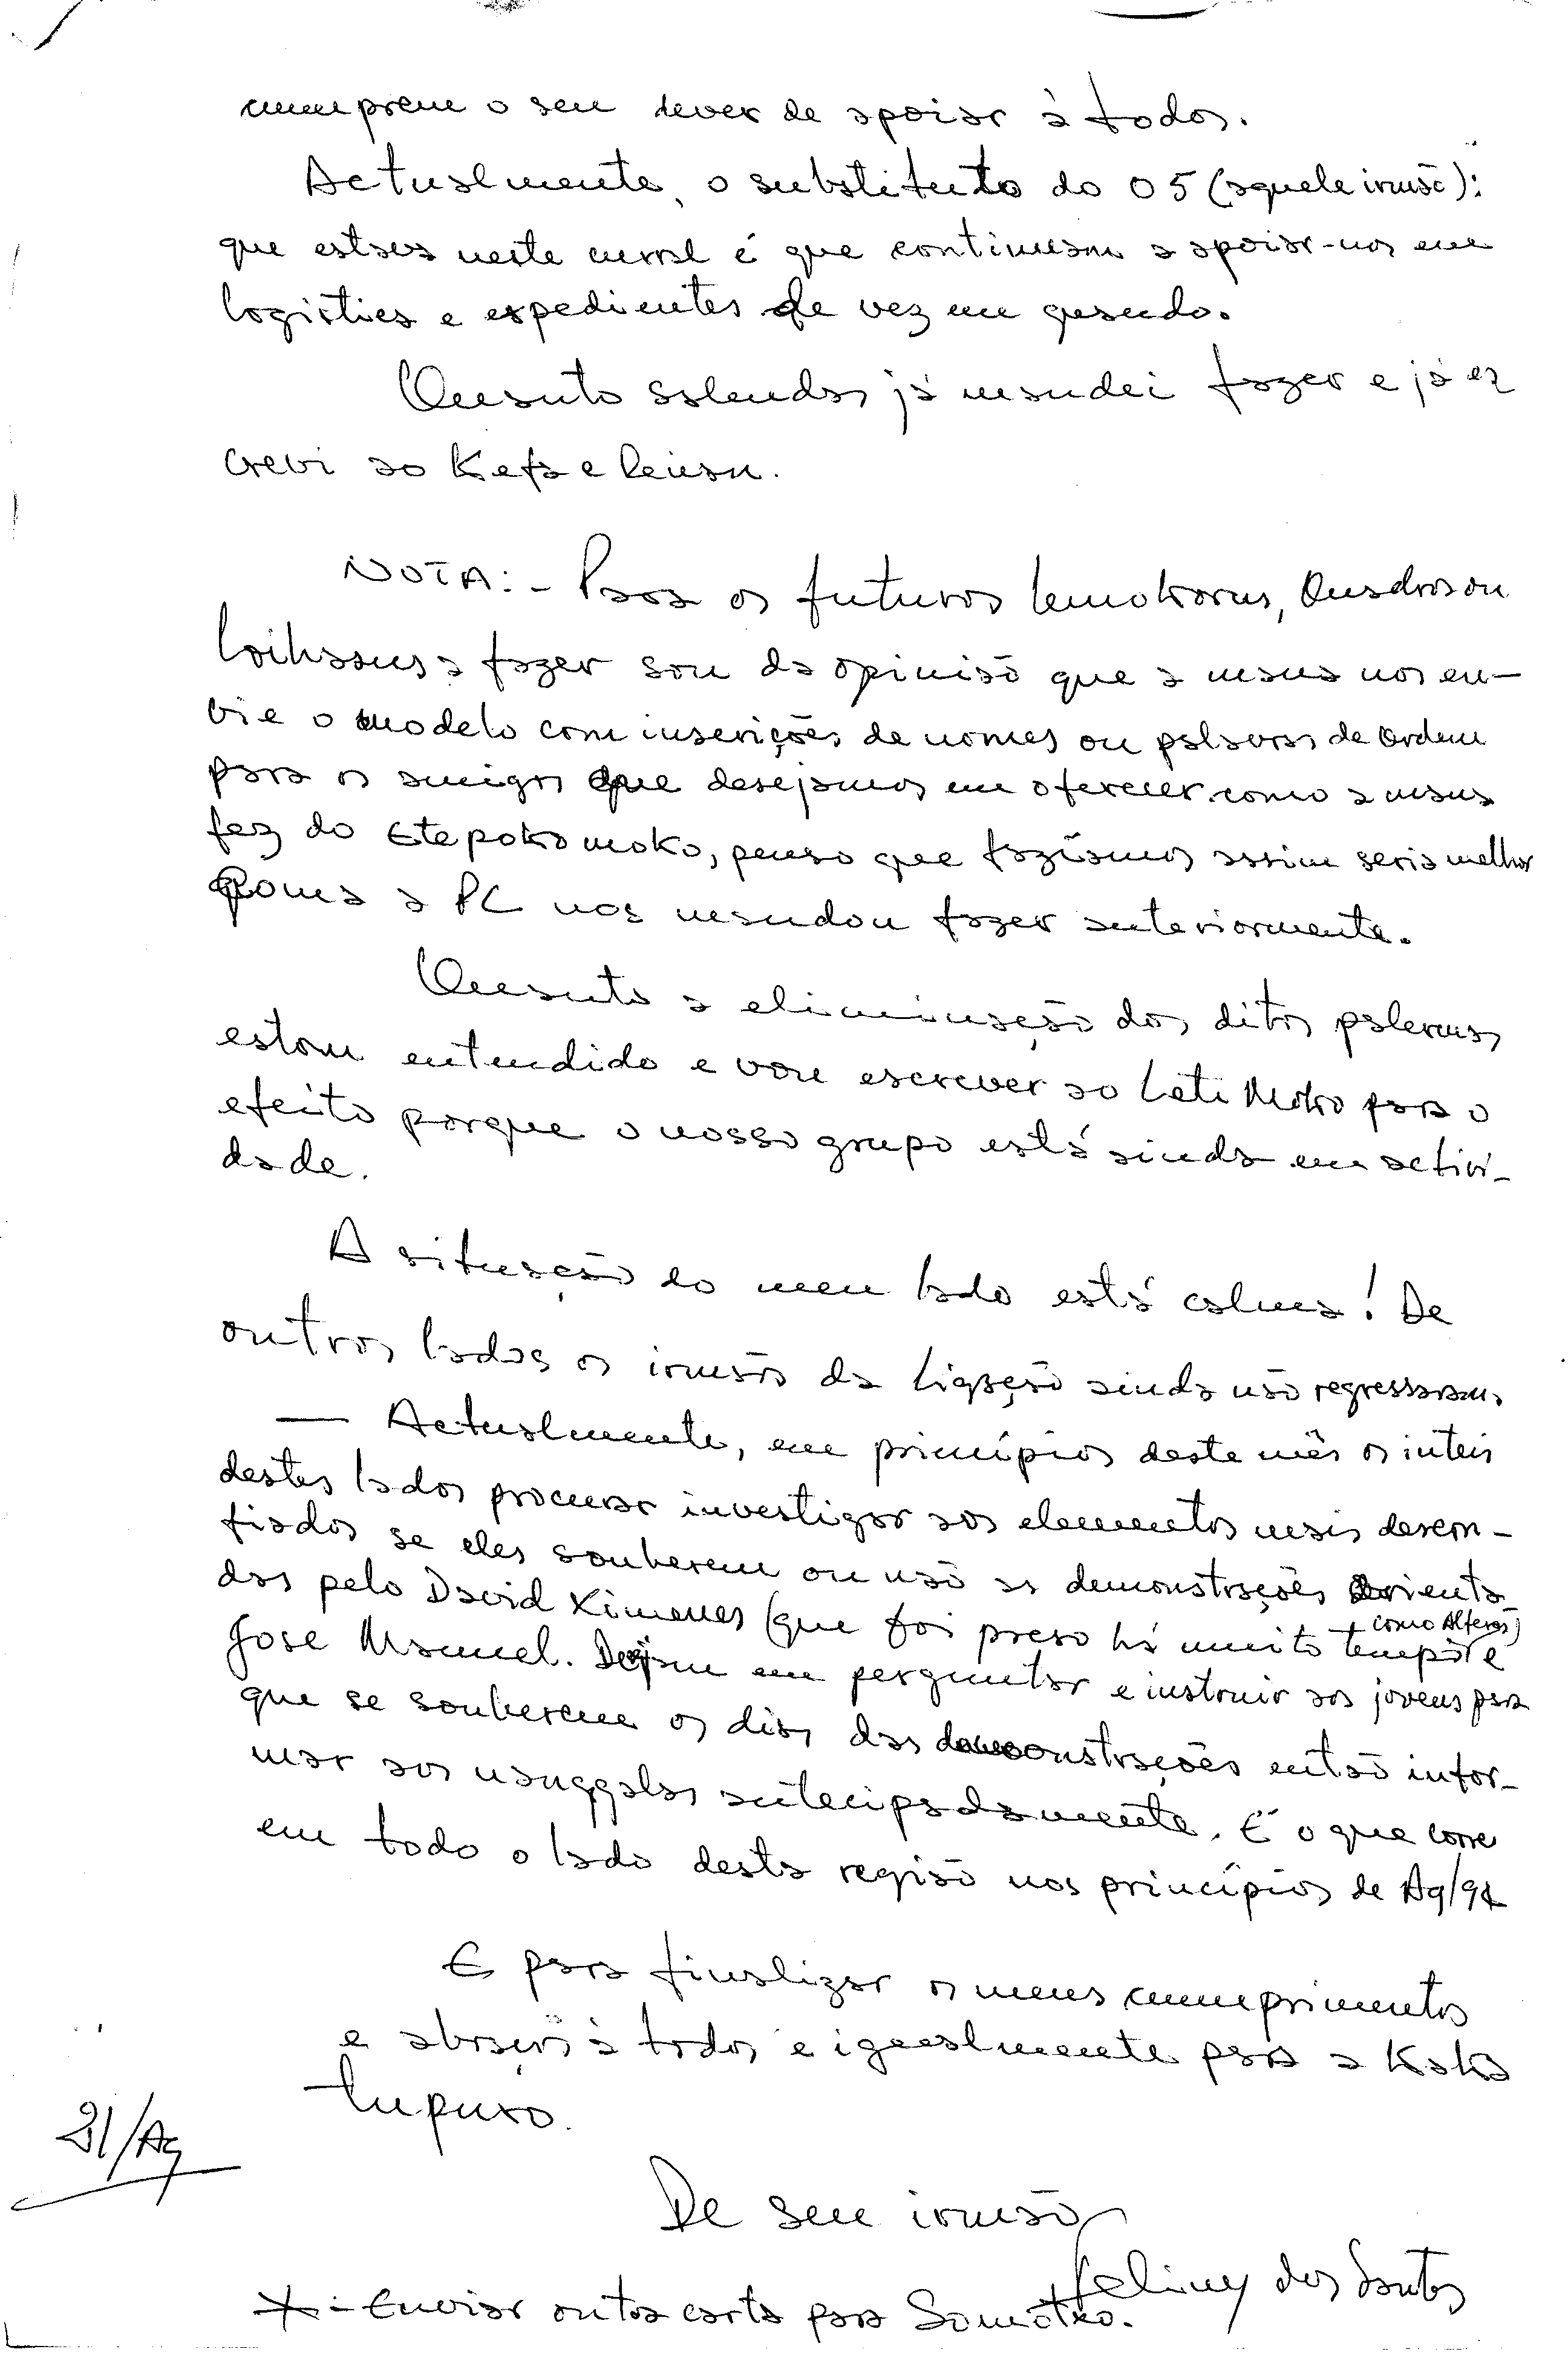 cumprem o seu dever de apoiar à todos.
Actualmente, o substituto do 05 (aquele irmão):
que estava neste curral é que continuam a apoiar-nos em
logística e expedientes de vez em quando.
Quanto salendas já mandei fazer e já es
crevi ao Kefa e Leiuan.
NOTA: - Para os futuros Quadros ou
a fazer sou da opinião que a mana nos en-
vie o modelo com inscrições de nomes ou palavras de ordem
para os amigos que desejamos em oferecer como a mana
fez do Etepokomoko, penso que fazíamos assim seria melhor
como a PC nos mandou fazer anteriormente.
Quanto a eliminação dos ditos palermas,
estou entendido e vou escrever ao Leti Moko para o
efeito porque o nosso grupo está ainda em activi-
dade.
A situação do meu lado está calma! De
outros lados os irmãos da ligação ainda não regressaram.
— Actualmente, em princípios deste mês os inteis
destes lados procurar investigar aos elementos mais descon-
fiados se eles souberem ou não as demonstrações orienta-
das pelo David Ximenes (que foi preso há muito tempo) e
como Alferes)
José Manuel. Dizem em perguntar e instruir aos jovens para
que se souberem os dias das demonstrações então infor-
mar aos nanggalas antecipadamente. É o que corre
em todo o lado desta região nos princípios de Ag/94
E para finalizar os meus cumprimentos
e abraços à todos e igualmente para a Kaka
Lupuro.
31/Ag
De seu irmão
Felincy dos Santos
* - Enviar outra carta para Somotxo.